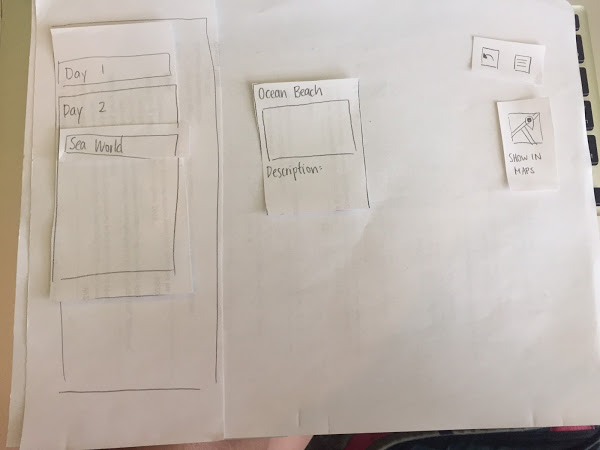 Day 1
Day 2
Sea World
Ocean Beach
Description:
SHOW IN
MAPS